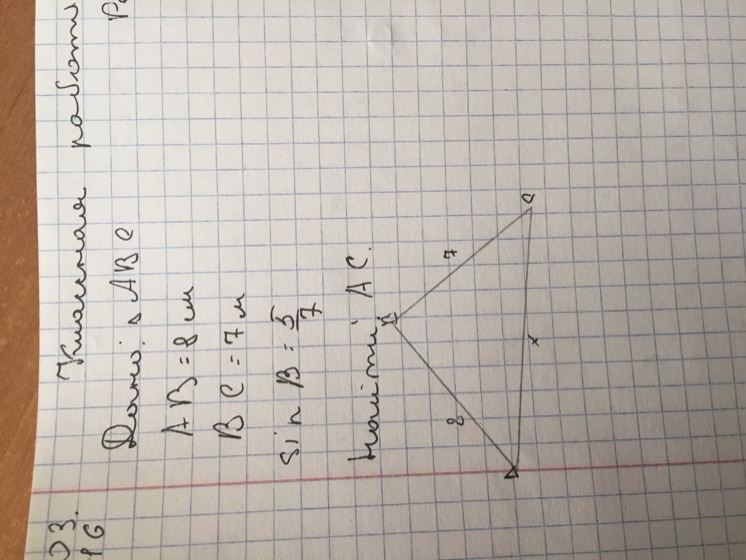 03.
16
Классная работа
Дано: △ABC
AB = 8 см
BC = 7 м
sin B = 5/7
Найти: AC.
B
8
7
A
x
C